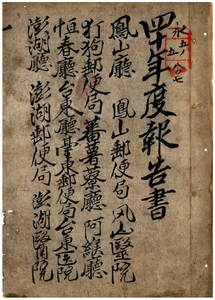 四十年度報告書
鳳山廳 鳳山郵便局 鳳山醫院
打狗郵便局 蕃薯藔廳 阿緱廳
恒春廳 台東廳 台東郵便局 台東医院
澎湖廳 澎湖郵便局 澎湖醫院